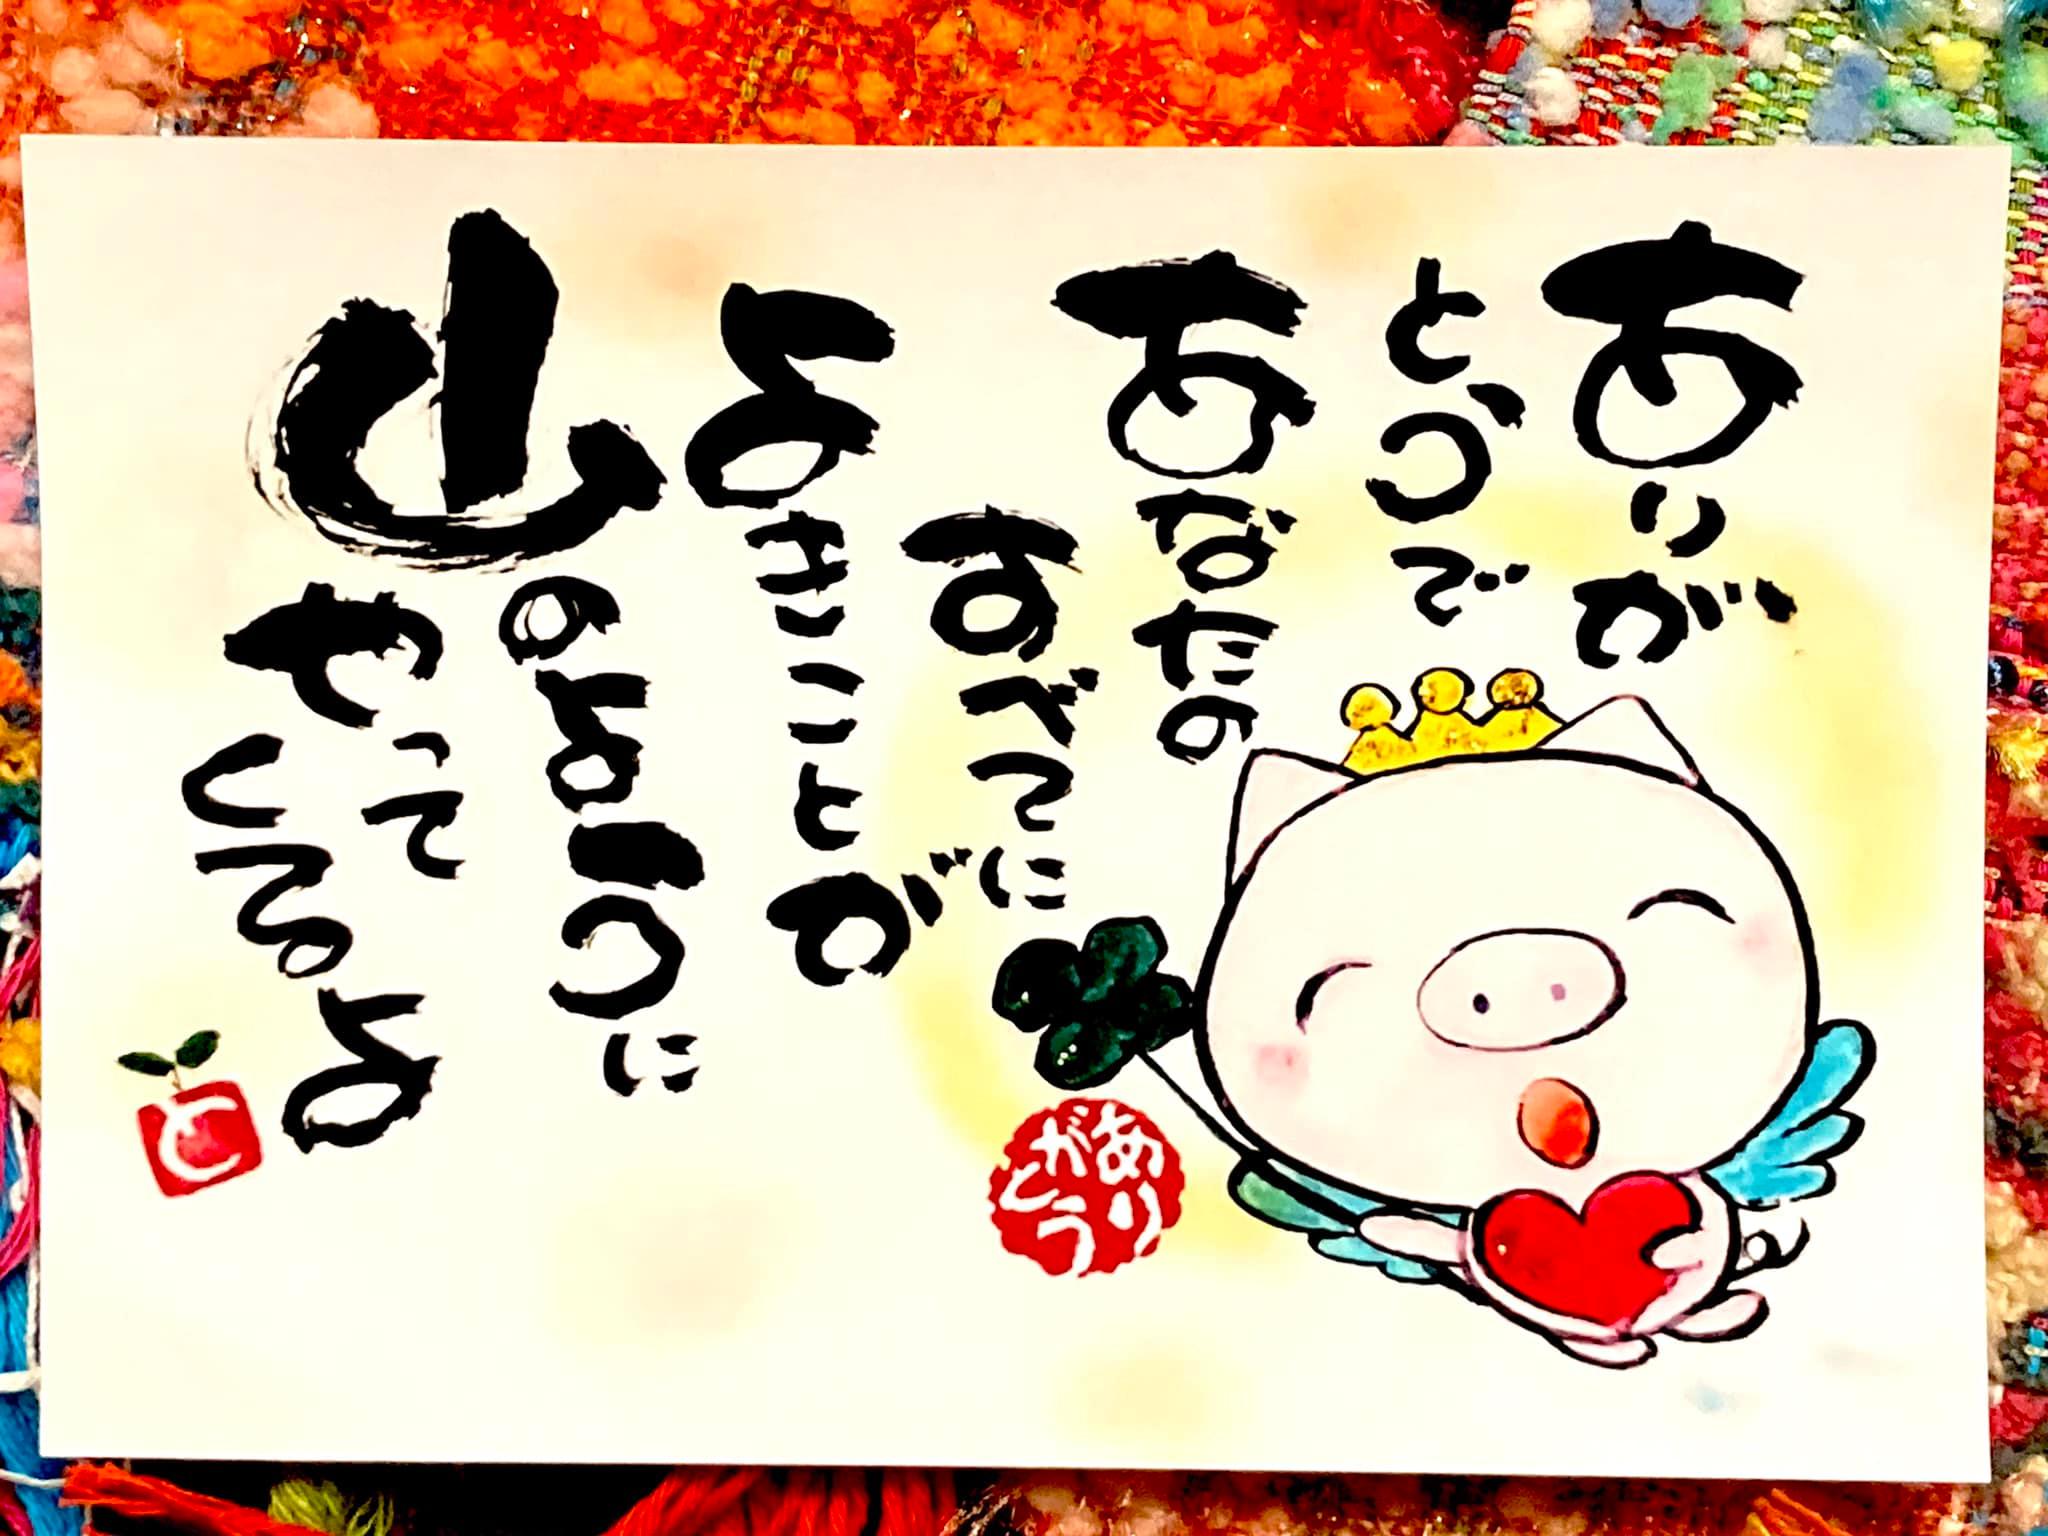 ありが
とうで
あなたの
すべてに
よきことが
山のように
やって
くるよ
ありがとう
と